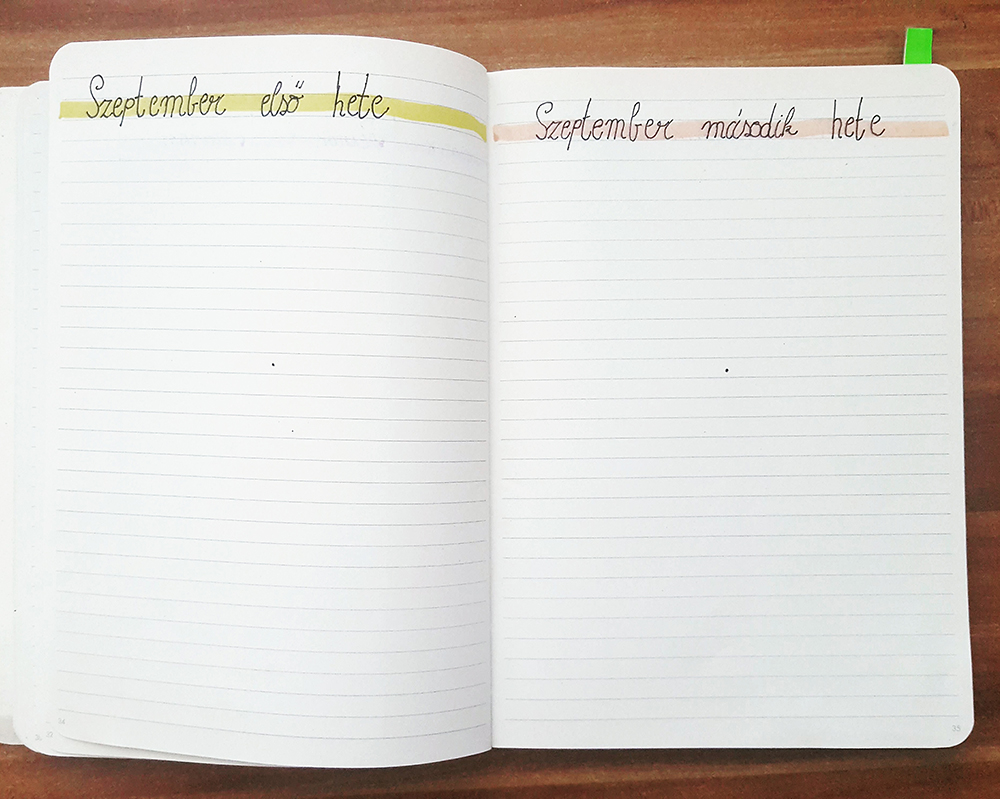 Szeptember első hete
Szeptember második hete
35